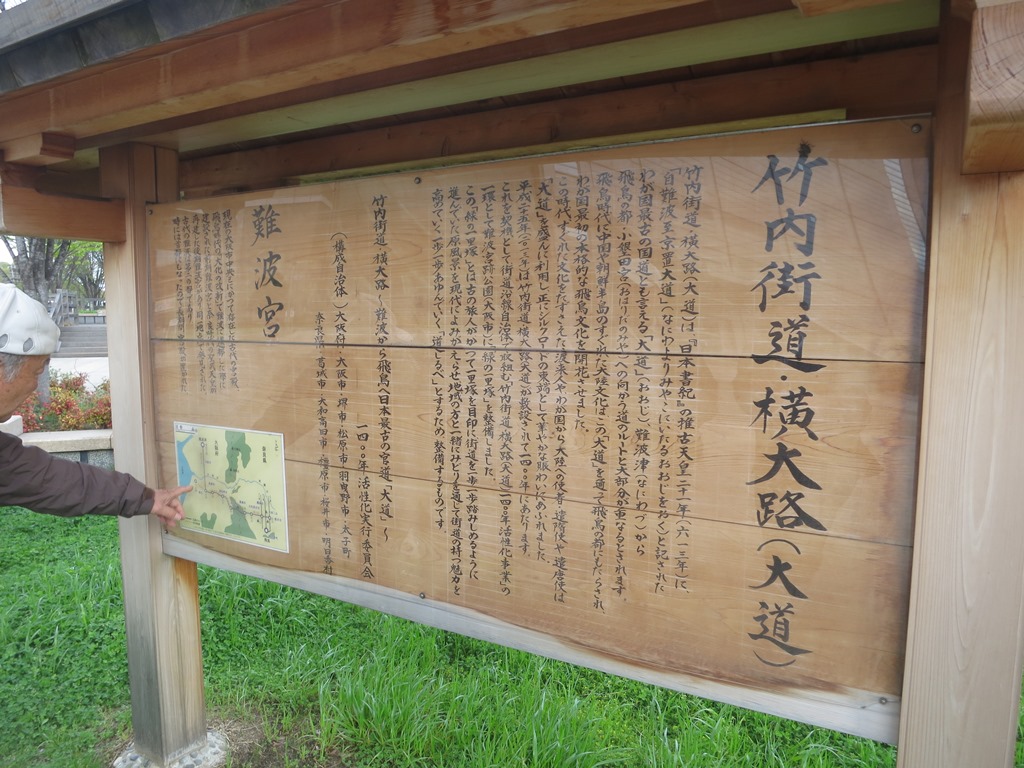 竹内街道・横大路(大道)
竹内街道・横大路(大道)は『日本書紀』の推古天皇二十一年(六一三年)に、
「自難波至京置大道」(なにわよりみやこにいたるおおじをおく)と記された
わが国最古の国道とも言える「大道」(おおじ)、難波津(なにわづ)から
飛鳥の都・小墾田宮(おはりだのみや)への向かう道のルートと大部分が重なるとされます。
飛鳥時代に中国や朝鮮半島のすぐれた大陸文化はこの「大道」を通って飛鳥の都にもたらされ、
わが国最初の本格的な飛鳥文化を開花させました。
この時代、すぐれた文化をたずさえた渡来人やわが国から大陸への使者・遣隋使や遣唐使は
「大道」を盛んに利用し正にシルクロードの東端として華やかな賑わいにあふれました。
平成二十五年(二〇一三年)は竹内街道・横大路(大道)が敷設されて一四〇〇年にあたります。
これを契機として街道沿線自治体で取組む「竹内街道・横大路(大道)一四〇〇年活性化事業」の
一環として難波宮跡公園(大阪市)に「緑の一里塚」を整備しました。
この「緑の一里塚」とは古の旅人がかつて一里塚を目印に街道を一歩一歩踏みしめるように
進んでいた原風景を現代によみがえらせ地域の方と一緒にみどりを通して街道の持つ魅力を
高めていく、一歩一歩あゆんでいく、「道しるべ」とするため整備するものです。
竹内街道・横大路〜難波から飛鳥へ日本最古の官道「大道」〜
一四〇〇年活性化実行委員会
(構成自治体)大阪府・大阪市・堺市・松原市・羽曳野市・太子町
奈良県・葛城市・大和高田市・橿原市・桜井市・明日香村
難波宮